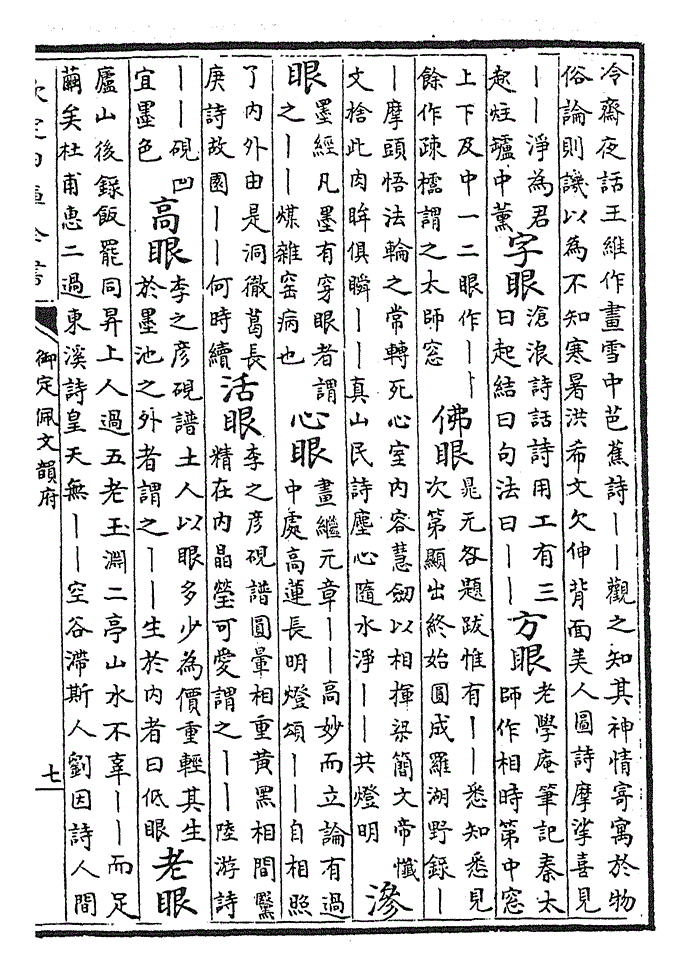 冷齋夜話王維作畫雪中芭蕉詩——觀之知其神情寄寓於物
俗論則譏以為不知寒暑洪希文欠伸背面美人圖詩摩挲喜見
——淨為君
起炷罏中薰
字眼
滄浪詩話詩用工有三
曰起結曰句法曰——
方眼
老學庵筆記秦太
師作相時第中窓
上下及中一二眼作——
餘作疎櫺謂之太師窓
佛眼
晁元咎題跋惟有——悉知悉見
次第顯出終始圓成羅湖野録—
—摩頭悟法輪之常轉死心室内容慧劒以相揮梁簡文帝懺
文捨此肉眸俱瞬——真山民詩塵心隨水淨——共燈明
滲
眼
墨經凡墨有穿眼者謂
之——煤雜窑病也
心眼
畫繼元章——高妙而立論有過
中處高蓮長明燈頌——自相照
了内外由是洞徹葛長
庚詩故園——何時續
活眼
李之彦硯譜圓暈相重黄黑相間黳
精在内晶瑩可愛謂之——陸游詩
——硯凹
宜墨色
高眼
李之彦硯譜土人以眼多少為價重輕其生
於墨池之外者謂之——生於内者曰低眼
老眼
廬山後録飯罷同昇上人過五老玉淵二亭山水不辜——而足
繭矣杜甫惠二過東溪詩皇天無——空谷滯斯人劉因詩人間
欽定四庫全書
御定佩文韻府
七